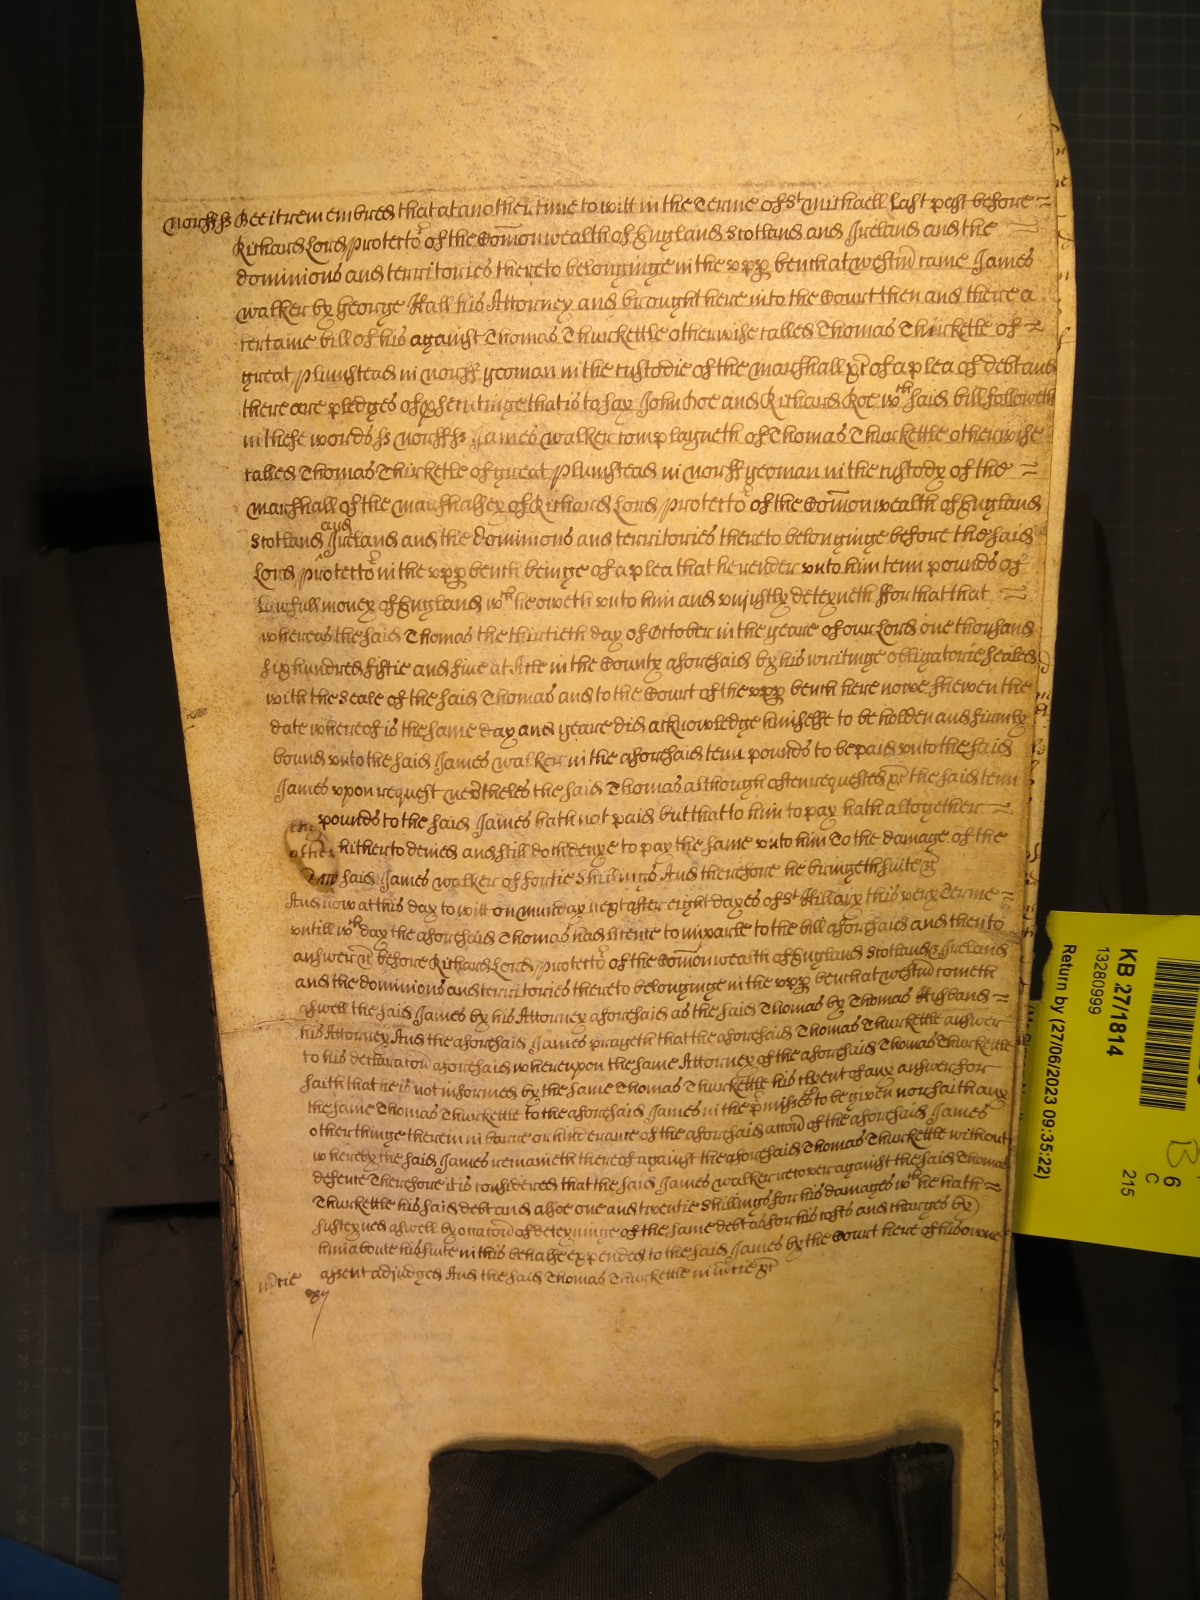 Norff ss Bee it remembred that at another time to witt in the Terme of St Michaell last past before
Richard Lord Protector of the Comonwealth of England Scotland and Ireland and the
dominions and territories thereto belonginge in the upp bench at Westm came James
Walker by George Hall his Attorney and brought here into the Court then and there a
certaine bill of his against Thomas Thurkettle otherwise called Thomas Thurkettle of
great Plumstead in Norff yeoman in the custodie of the Marshall &c of a plea of debt and
there are pledges of psecutinge that is to say John Doe and Richard Roe wch said bill followeth
in these words ss Norff ss James Walker complayneth of Thomas Thurkettle otherwise
called Thomas Thurkettle of great Plumstead in Norff yeoman in the custody of the
Marshall of the Marshalsey of Richard Lord Protector of the Comonwealth of England
Scotland and Ireland and the dominions and territories thereto belonginge before the said
Lord Protector in the upp bench beinge of a plea that he render unto him tenn pounds of
lawfull money of England wch he oweth unto him and unjustly deteyneth ffor that that
whereas the said Thomas the thirtieth day of October in the yeare of our Lord one thousand
six hundred fiftie and five at Acle in the County aforesaid by his writinge obligatorie sealed
with the Seale of the said Thomas and to the Court of the upp bench here nowe shewen the
date whereof is the same day and yeare did acknowledge himselfe to be holden and firmly
bound unto the said James Walker in the aforesaid tenn pounds to be paid unto the said
James upon request nevtheles the said Thomas although often requested &c the said tenn
pounds to the said James hath not paid but that to him to pay hath altogether
hitherto denied and still doth denye to pay the same unto him To the damage of the
said James Walker of fortie shillings And therefore he bringeth suite &c
And now at this day to witt on munday next after eight dayes of St Hillary this very Terme
untill wch day the aforesaid Thomas had licence to imparle to the bill aforesaid and then to
answer &c before Richard Lord Protector of the Comonwealth of England Scotland & Ireland
and the dominions and territories thereto belonginge in the upp bench at Westm cometh
aswell the said James by his Attorney aforesaid as the said Thomas by Thomas Husband
his Attorney And the aforesaid James prayeth that the aforesaid Thomas Thurkettle answer
to his declaracon aforesaid whereupon the same Attorney of the aforesaid Thomas Thurkettle
saith that he is not informed by the same Thomas Thurkettle his clyent of any answer for
the same Thomas Thurkettle to the aforesaid James in the pmisses to be given nor saith any
other thinge therein in barre or hinderance of the aforesaid accon of the aforesaid James
whereby the said James remaineth thereof against the aforesaid Thomas Thurkettle without
defence Therefore it is considered that the said James Walker recover against the said Thomas
Thurkettle his said debt and alsoe one and twentie shillings for his damages wch he hath
susteyned aswell by occacon of deteyninge of the same debt as for his costs and charges by
him about his suite in this behalfe expended to the said James by the Court here of his owne
assent adjudged And the said Thomas Thurkettle in mcie &c
mcie
KB 27/1814
13280999
Return by (27/06/2023 09:35:22)
B
6
C
215